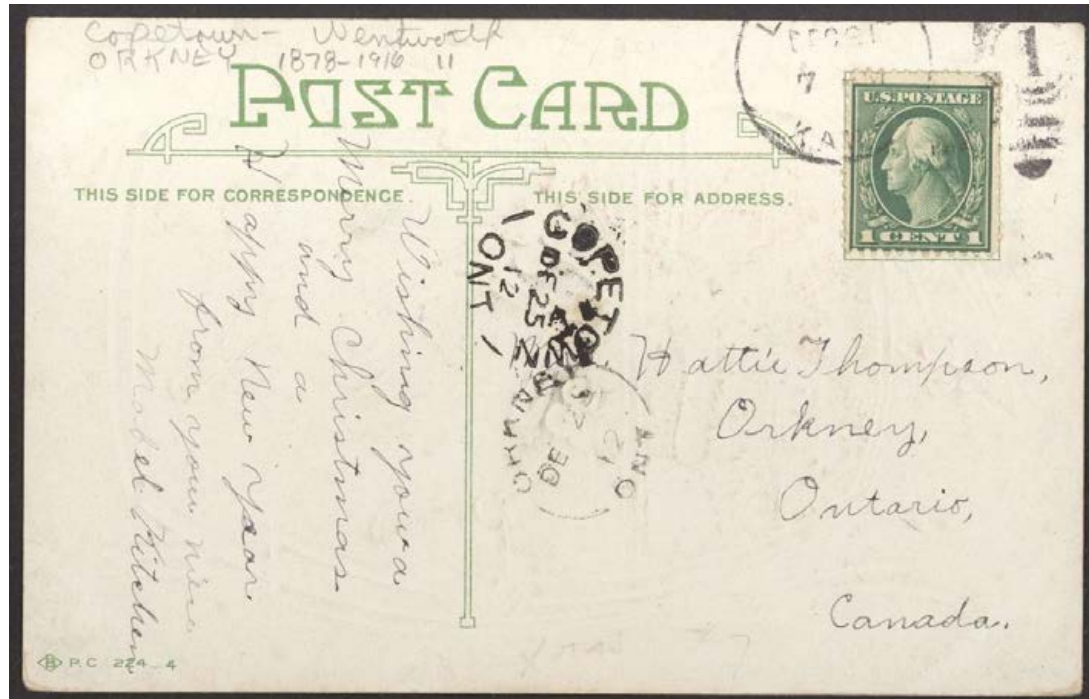 Copetown - Wentworth
ORKNEY 1878-1916 11
POST CARD
THIS SIDE FOR CORRESPONDENCE.
THIS SIDE FOR ADDRESS.
U.S. POSTAGE
1 CENT 1
DEC 21
7
KAN
1
COPETOWN
DE 25
12
ONT
ORKNEY
DE
ONT
Wishing you a
Merry Christmas
and a
Happy New Year.
from your niece
Mabel Kitchen
Hattie Thompson,
Orkney,
Ontario,
Canada.
P.C. 224-4